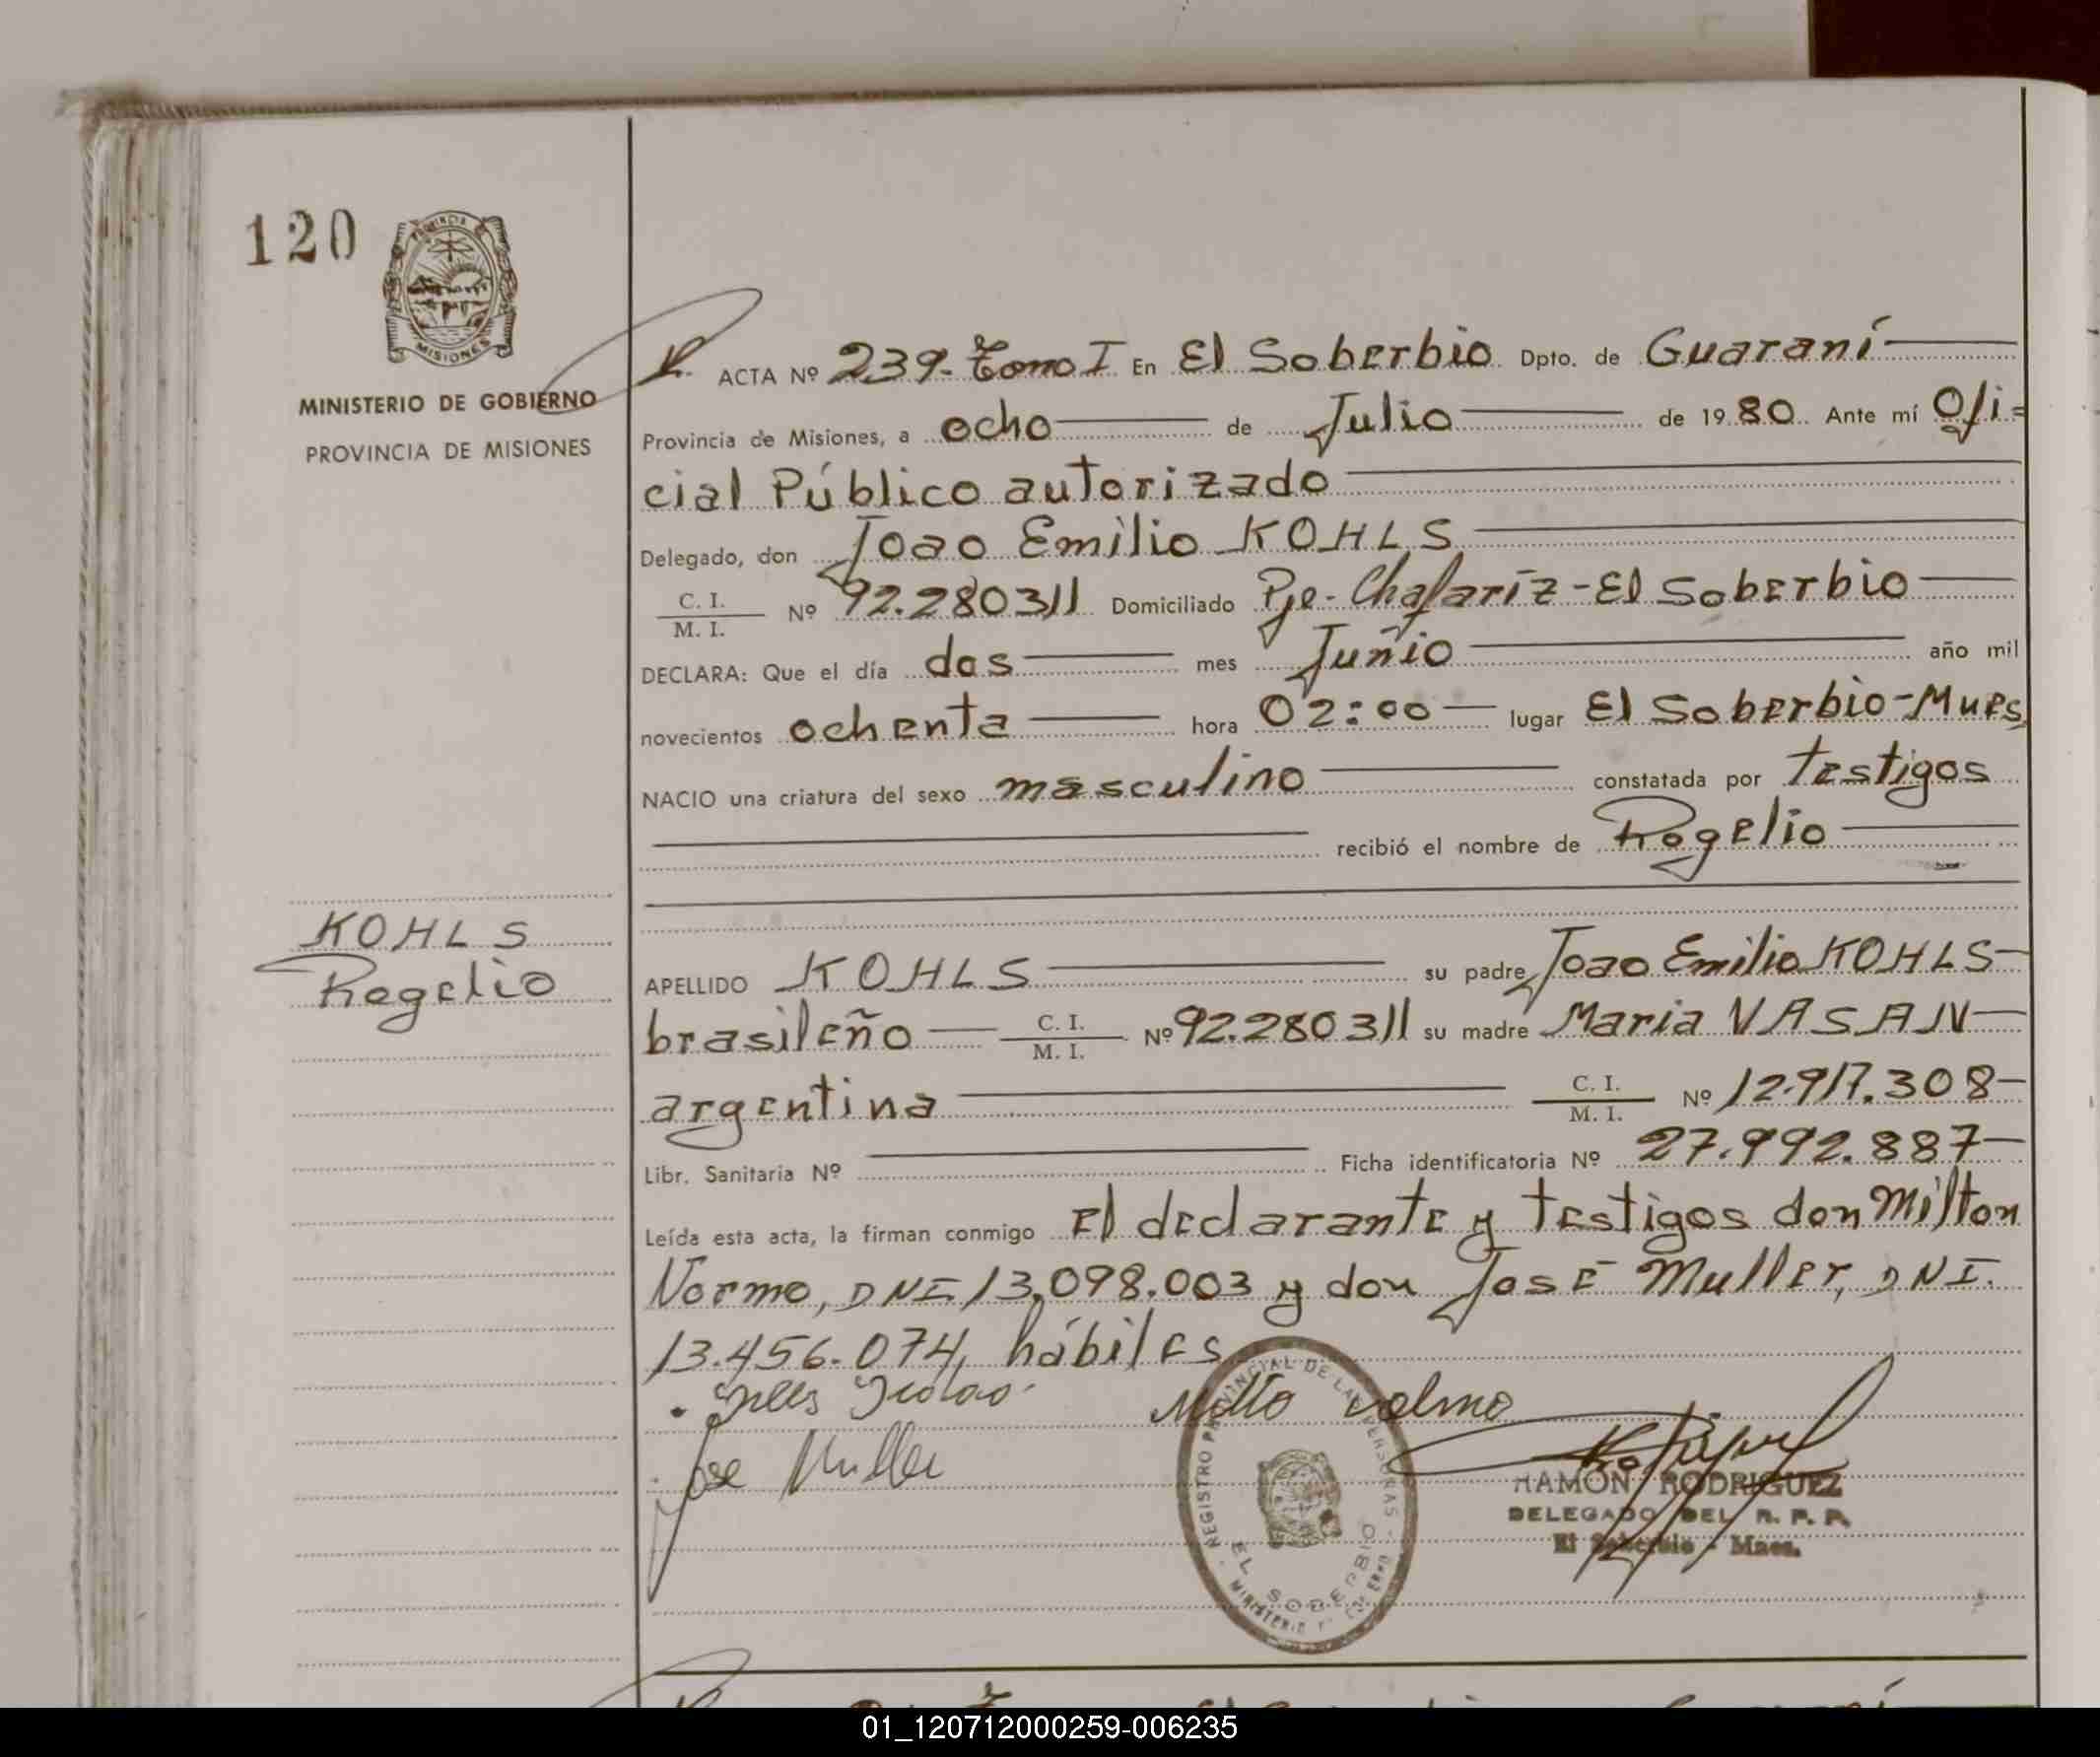 120
PROVINCIA
MISIONES
MINISTERIO DE GOBIERNO
PROVINCIA DE MISIONES
KOHLS
Rogelio
ACTA Nº 239. Tomo I En El Soberbio Dpto. de Guaraní
Provincia de Misiones, a ocho de Julio de 1980. Ante mí Ofi=
cial Público autorizado
Delegado, don Joao Emilio KOHLS
C. I. / M. I. Nº 92.280311 Domiciliado Pje. Chafaríz - El Soberbio
DECLARA: Que el día dos mes Junio año mil
novecientos ochenta hora 02:00 lugar El Soberbio - Mnes
NACIO una criatura del sexo masculino constatada por testigos
recibió el nombre de Rogelio
APELLIDO KOHLS su padre Joao Emilio KOHLS
brasileño C. I. / M. I. Nº 92.280311 su madre Maria VASAN
argentina C. I. / M. I. Nº 12.917.308
Libr. Sanitaria Nº Ficha identificatoria Nº 27.992.887
Leída esta acta, la firman conmigo El declarante y testigos don Milton
Normo, DNI 13.098.003 y don José Muller, DNI.
13.456.074, hábiles
Jose Muller
REGISTRO PROVINCIAL DE LAS PERSONAS
EL SOBERBIO
MINISTERIO DE GOBIERNO
RAMON RODRIGUEZ
DELEGADO DEL R. P. P.
El Soberbio - Mnes.
01_120712000259-006235